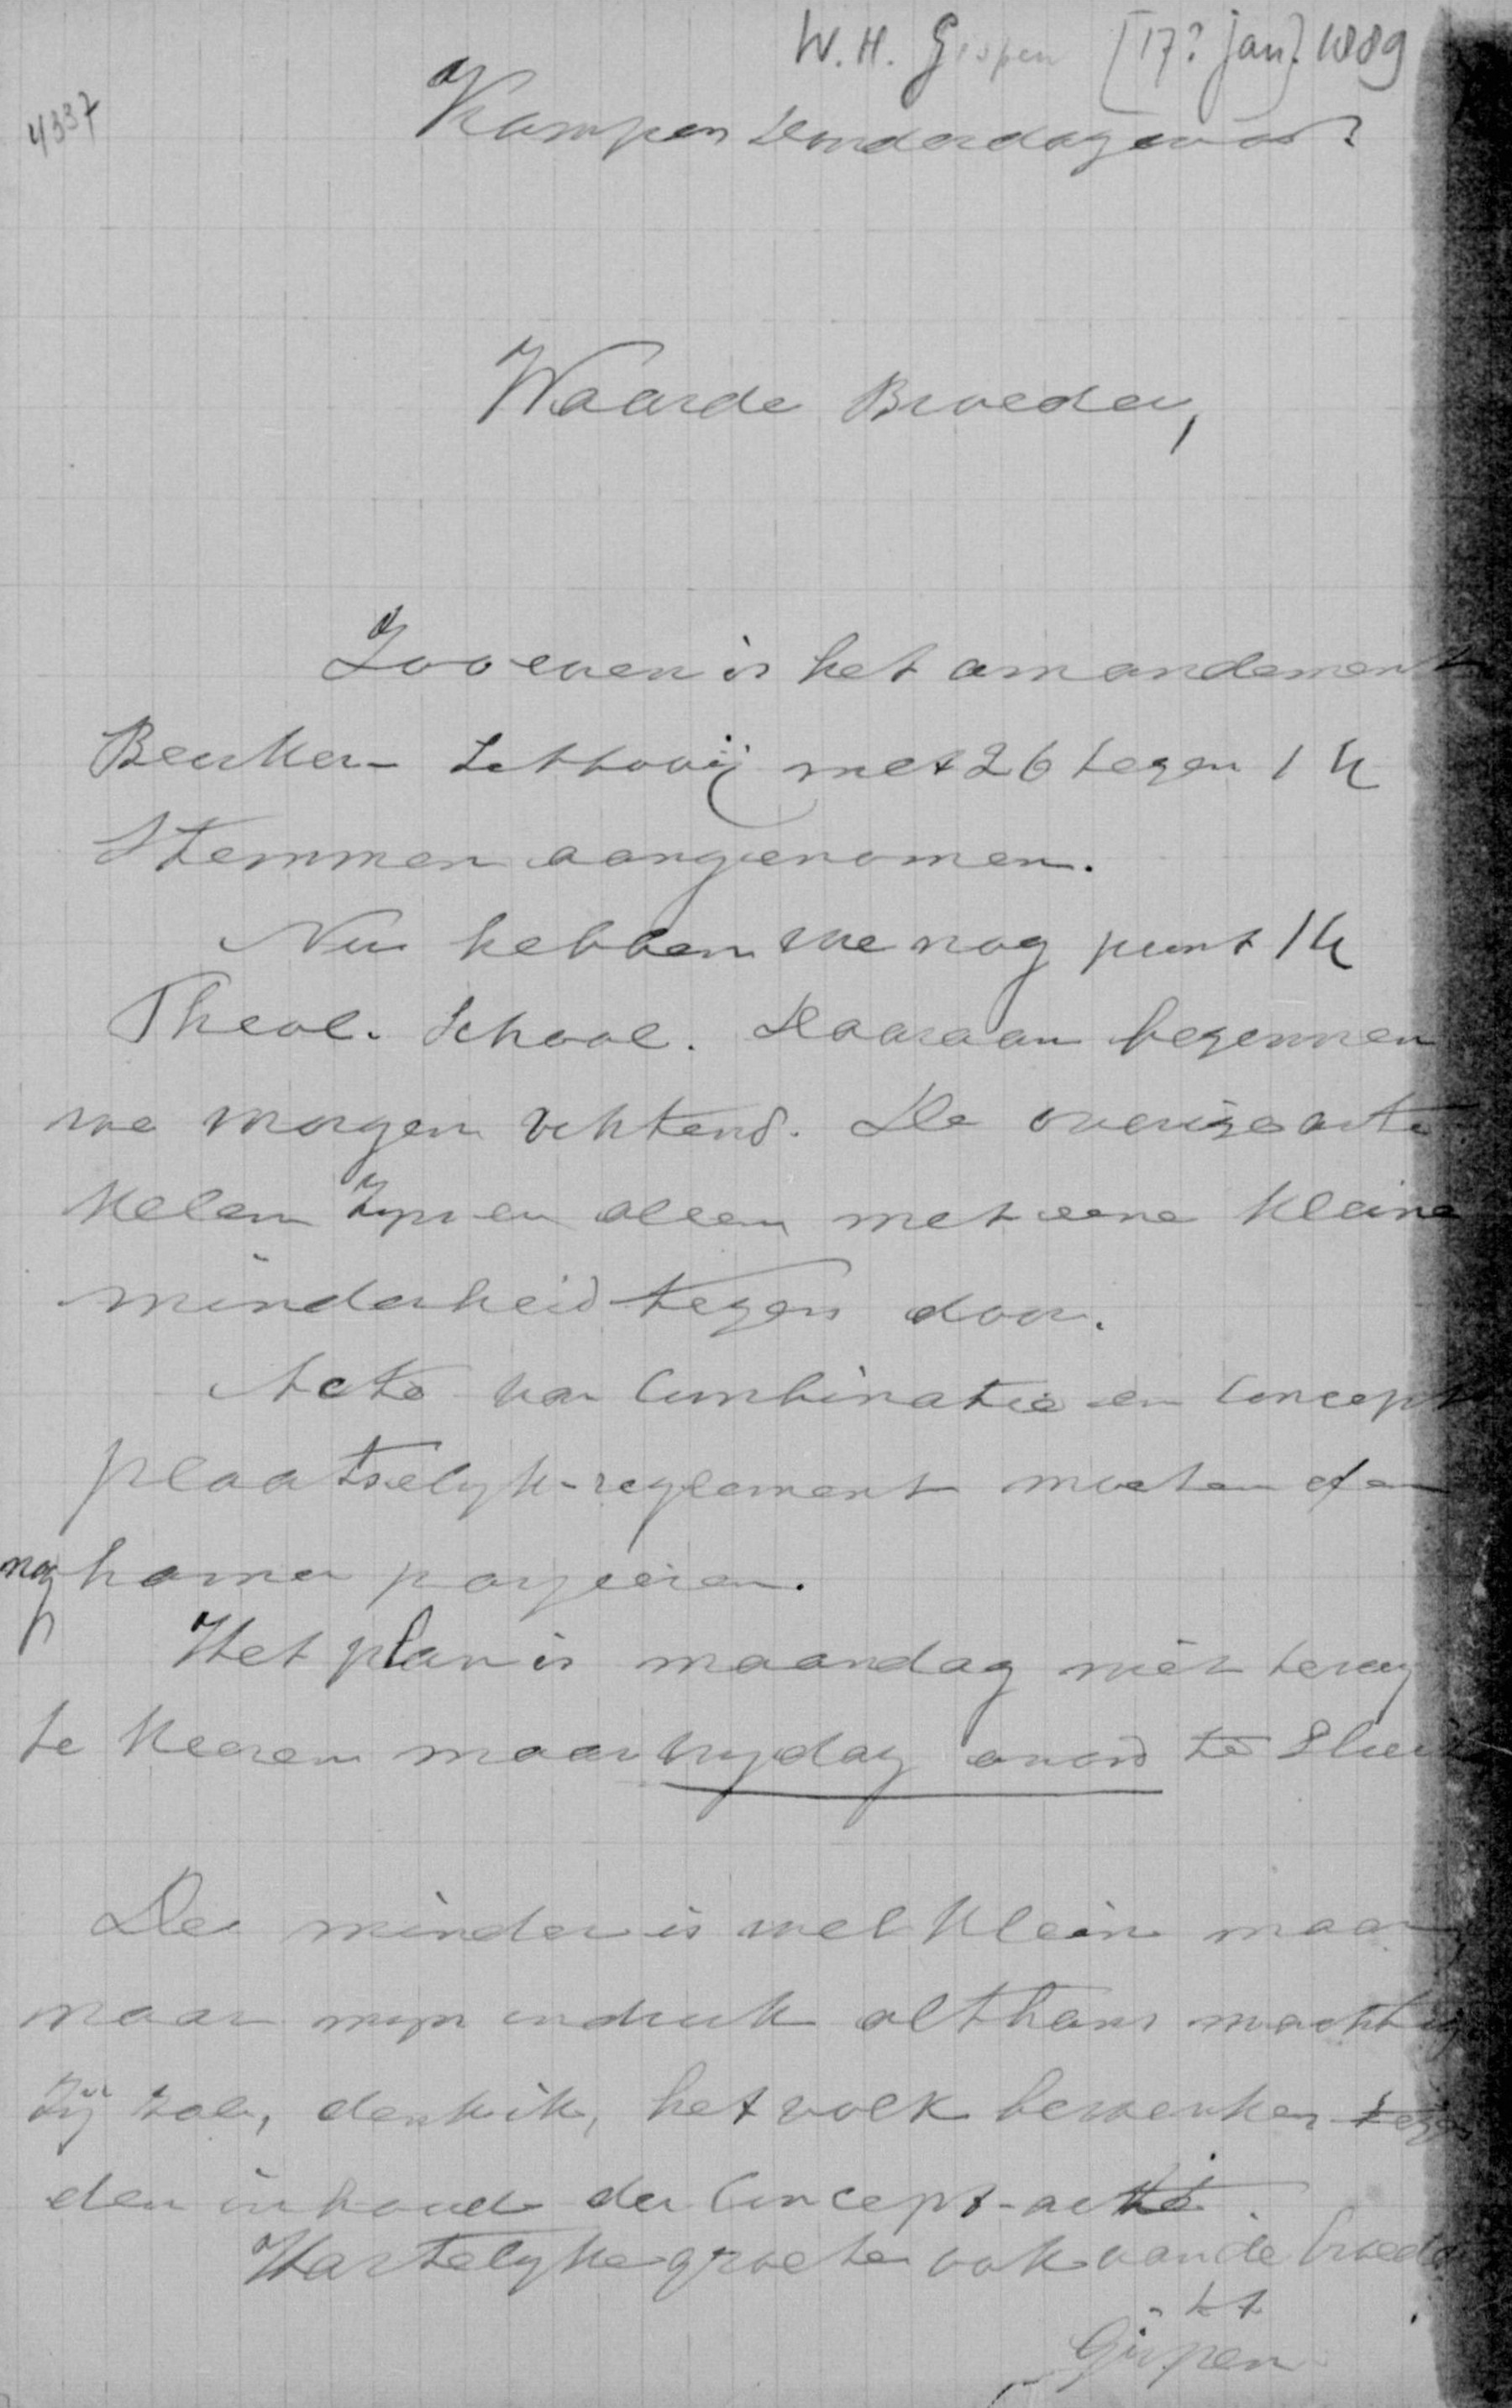 W.H. Gispen [17? jan.] 1889
4337
Kampen Donderdagavond
Waarde Broeder,
Zooeven is het amandement
Beuker - Littooij met 26 tegen 14
Stemmen aangenomen.
Nu hebben we nog punt 14
Theol. School. Daaraan begennen
we morgen ochtend. De overige arti
kelen zyn er alleen met eene kleine
minderheid tegen door.
Acte van Combinatie en Concept
plaatselyk-reglement moeten dan
nog passeeren.
Het plan is maandag niet terug
te keeren maar vrydag avond te Slui
De minder is wel klein maar,
naar myn indruk althans machtig
Zij zal, denk ik, het volk bewerken tegen
den inhoud der Concept-acte.
Hartelyke groeten ook van de broeders
tt
Gispen